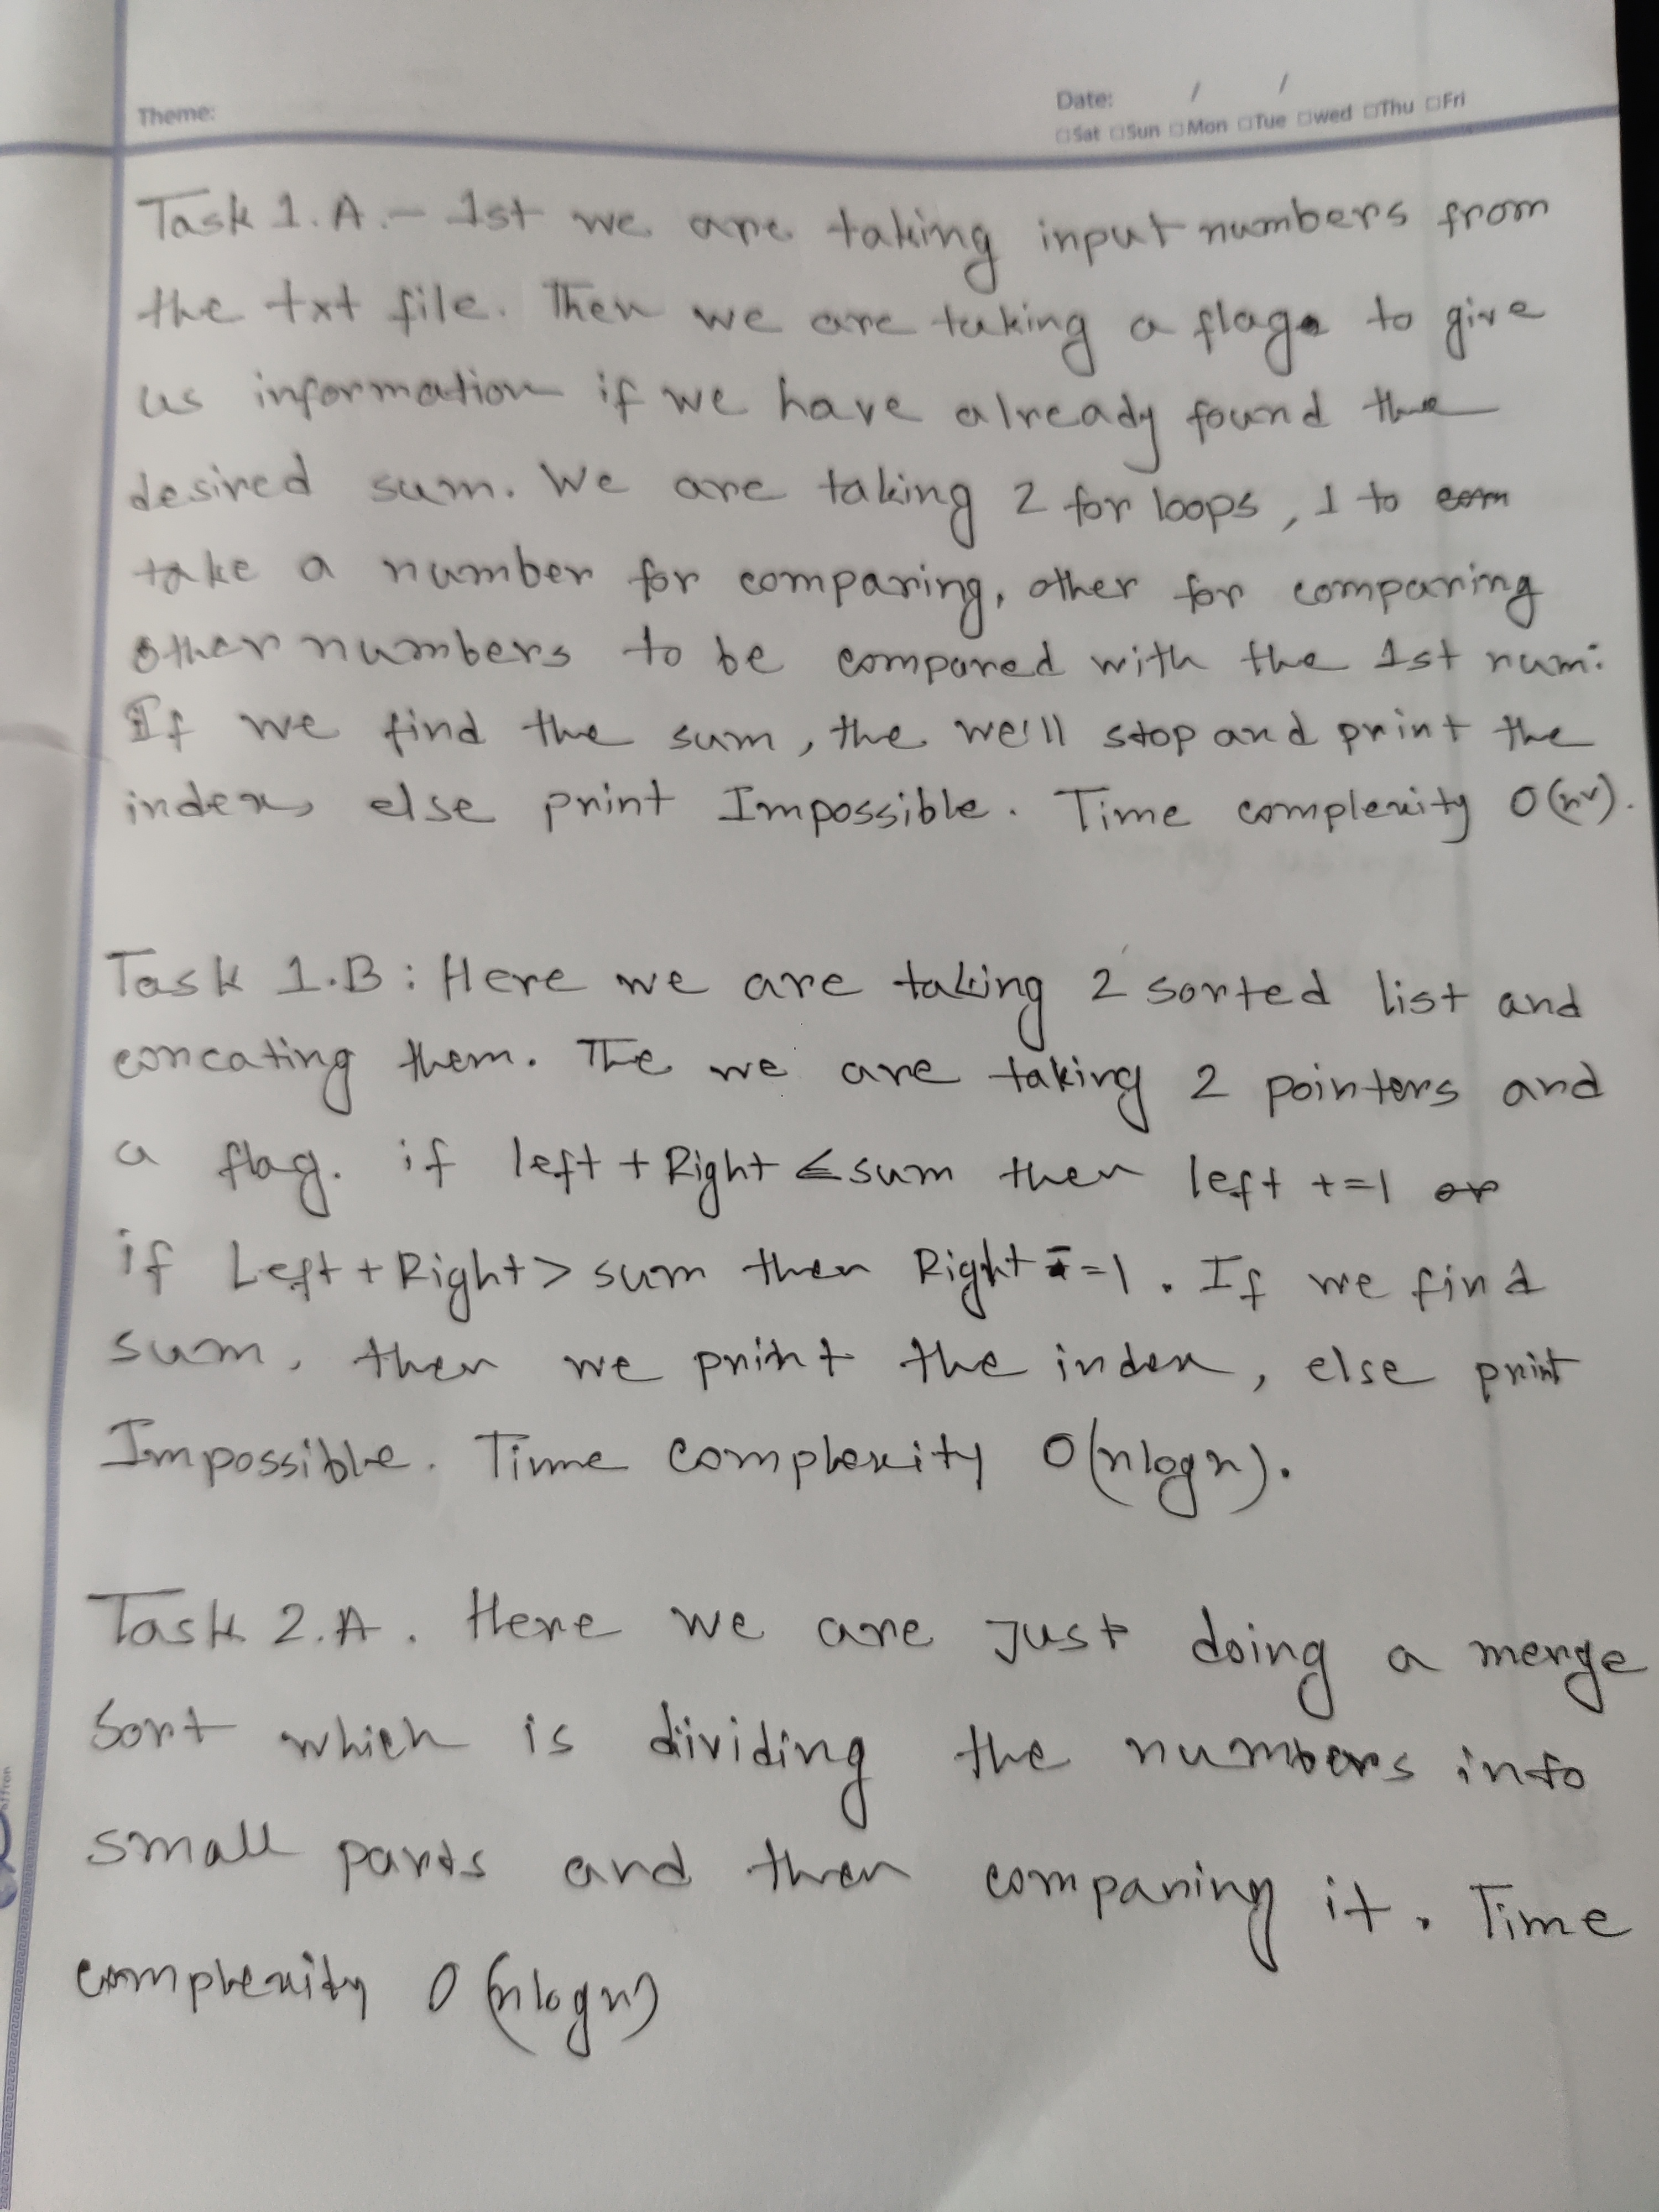 Theme:
Date: / /
Sat Sun Mon Tue wed Thu Fri
Task 1.A.- 1st we are taking input numbers from
the txt file. Then we are taking a flag to give
us information if we have already found the
desired sum. We are taking 2 for loops, 1 to
take a number for comparing, other for comparing
other numbers to be compared with the 1st num.
If we find the sum, the we'll stop and print the
index, else print Impossible. Time complexity O(n²).
Task 1.B: Here we are taking 2 sorted list and
concating them. The we are taking 2 pointers and
a flag. if left + Right ≤ sum then left +=1 or
if Left + Right > sum then Right -=1. If we find
sum, then we print the index, else print
Impossible. Time complexity O(nlogn).
Task 2.A. Here we are Just doing a merge
Sort which is dividing the numbers into
small parts and then comparing it. Time
complexity O(nlogn)